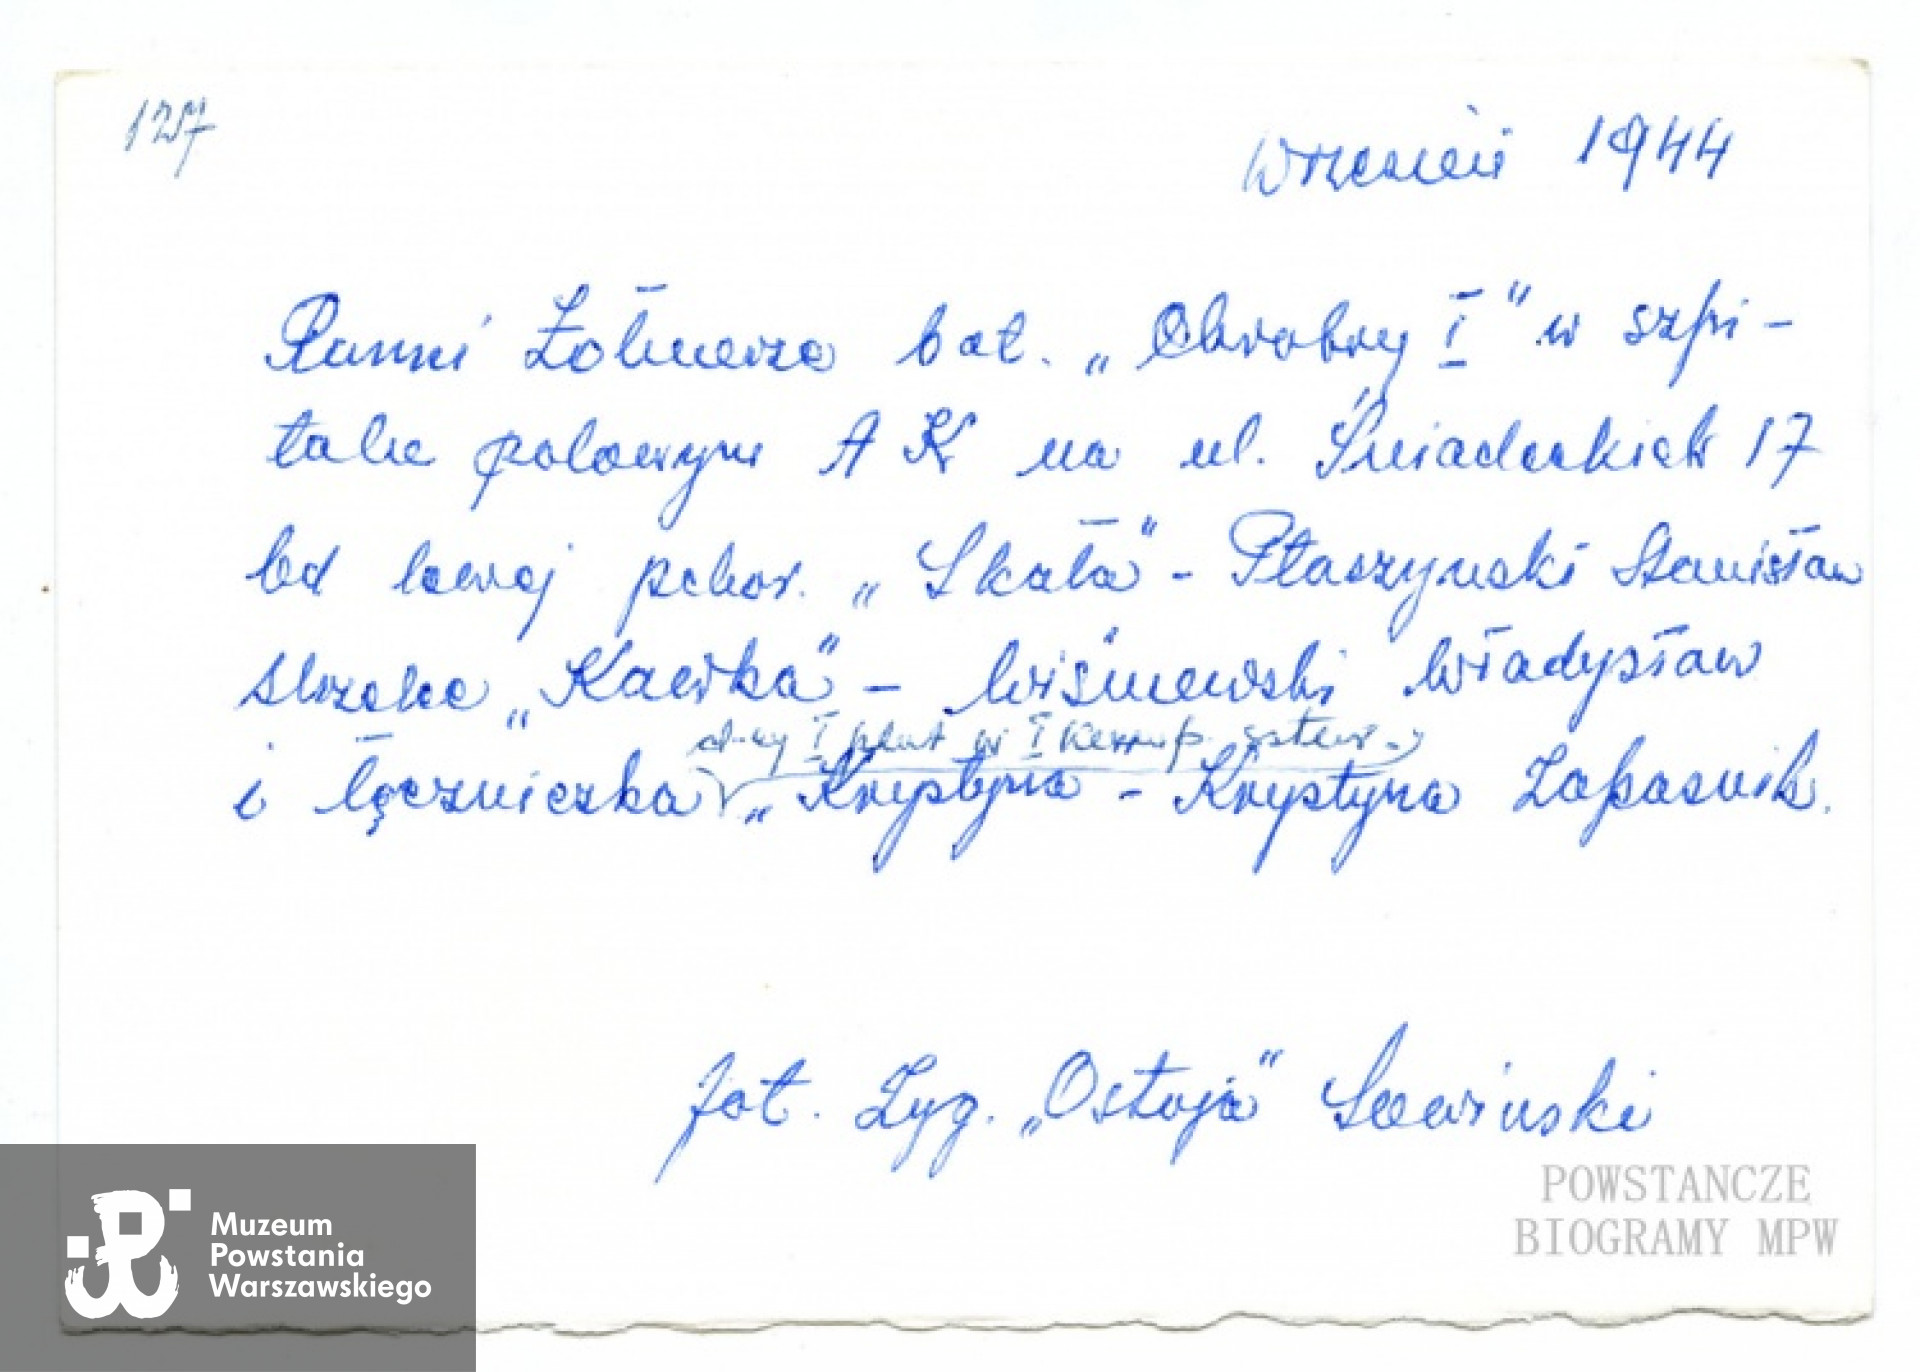 127
Wrzesień 1944
Ranni Żołnierze bat. „Chrobry I" w szpi-
talu polowym AK na ul. Śniadeckich 17
Od lewej pchor. „Skała" - Płaszyński Stanisław
strzelec „Kawka" - Wiśniewski Władysław
d-cy I plut w I komp.
i łączniczka „Krystyna - Krystyna Zapaśnik.
fot. Zyg. „Ostoja" Sowiński
POWSTAŃCZE
BIOGRAMY MPW
Muzeum
Powstania
Warszawskiego